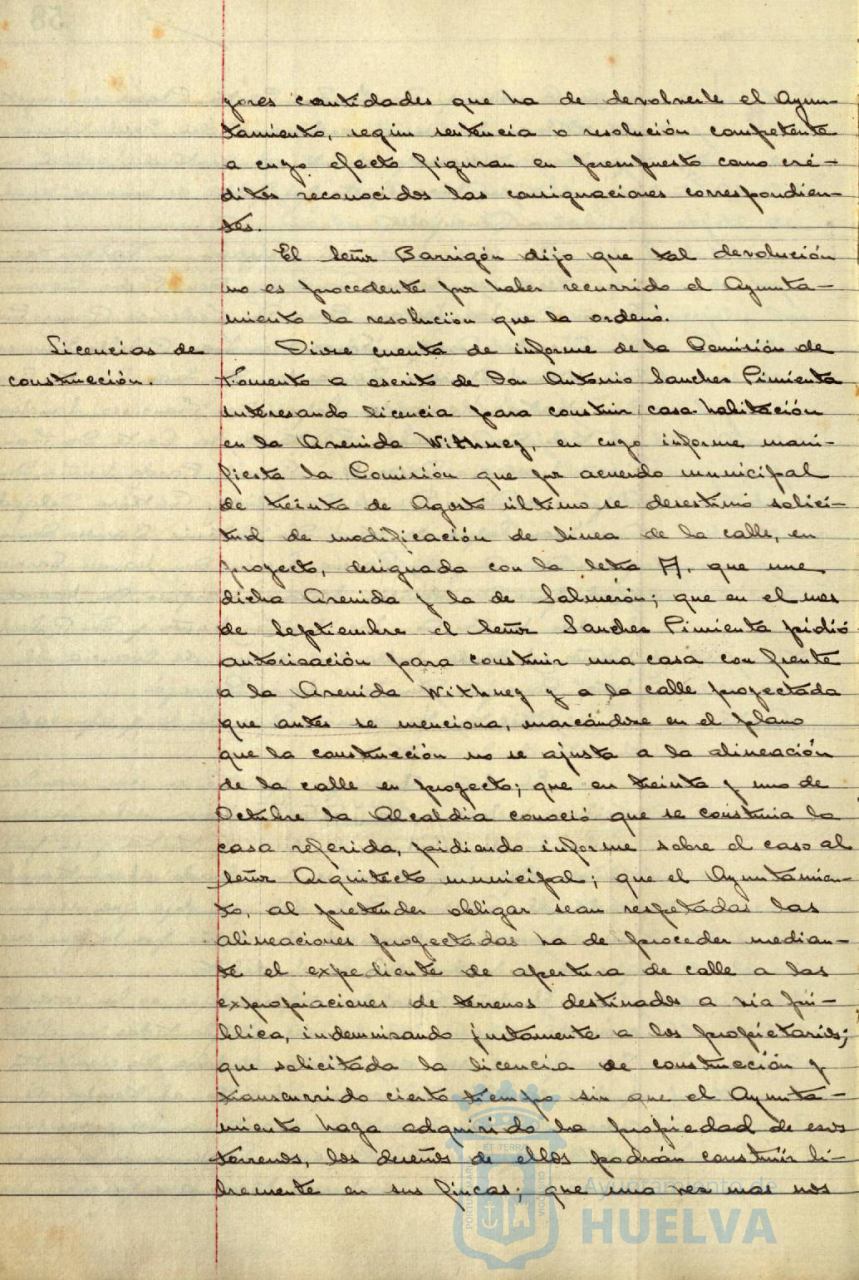 yores cantidades que ha de devolverle el Ayun-
tamiento, según sentencia o resolución competente
a cuyo efecto figuran en presupuesto como cré-
ditos reconocidos las consignaciones correspondien-
tes.
El Señor Barrigón dijo que tal devolución
no es procedente por haber recurrido el Ayunta-
miento la resolución que la ordenó.
Licencias de
construcción.
Dióse cuenta de informe de la Comisión de
Fomento a escrito de Don Antonio Sanchez Pimienta
interesando licencia para construir casa habitación
en la Avenida Withney, en cuyo informe mani-
fiesta la Comisión que por acuerdo municipal
de treinta de Agosto último se desestimó solici-
tud de modificación de línea de la calle, en
proyecto, designada con la letra A, que une
dicha Avenida y la de Salmerón; que en el mes
de Septiembre el Señor Sanchez Pimienta pidió
autorización para construir una casa con frente
a la Avenida Withney y a la calle proyectada
que antes se menciona, marcándose en el plano
que la construcción no se ajusta a la alineación
de la calle en proyecto; que en treinta y uno de
Octubre la Alcaldía conoció que se construia la
casa referida, pidiendo informe sobre el caso al
Señor Arquitecto municipal; que el Ayuntamien-
to, al pretender obligar sean respetadas las
alineaciones proyectadas ha de proceder median-
te el expediente de apertura de calle a las
expropiaciones de terrenos destinados a vía pú-
blica, indemnizando justamente a los propietarios;
que solicitada la licencia de construcción y
transcurrido cierto tiempo sin que el Ayunta-
miento haya adquirido la propiedad de esos
terrenos, los dueños de ellos podrán construir li-
bremente en sus fincas; que una vez mas nos
Ayuntamiento de
HUELVA